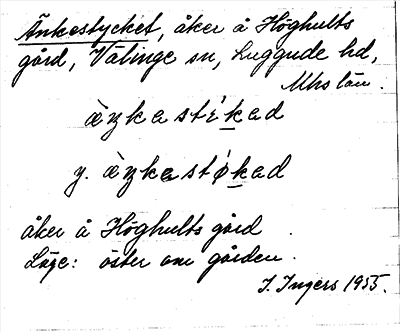 Änkestycket, åker å Höghults
gård, Välinge sn, Luggude hd,
Mhs län.
àŋkastı̇́kad
y. àŋkastǿkad
åker å Höghults gård.
Läge: öster om gården.
I. Ingers 1955.